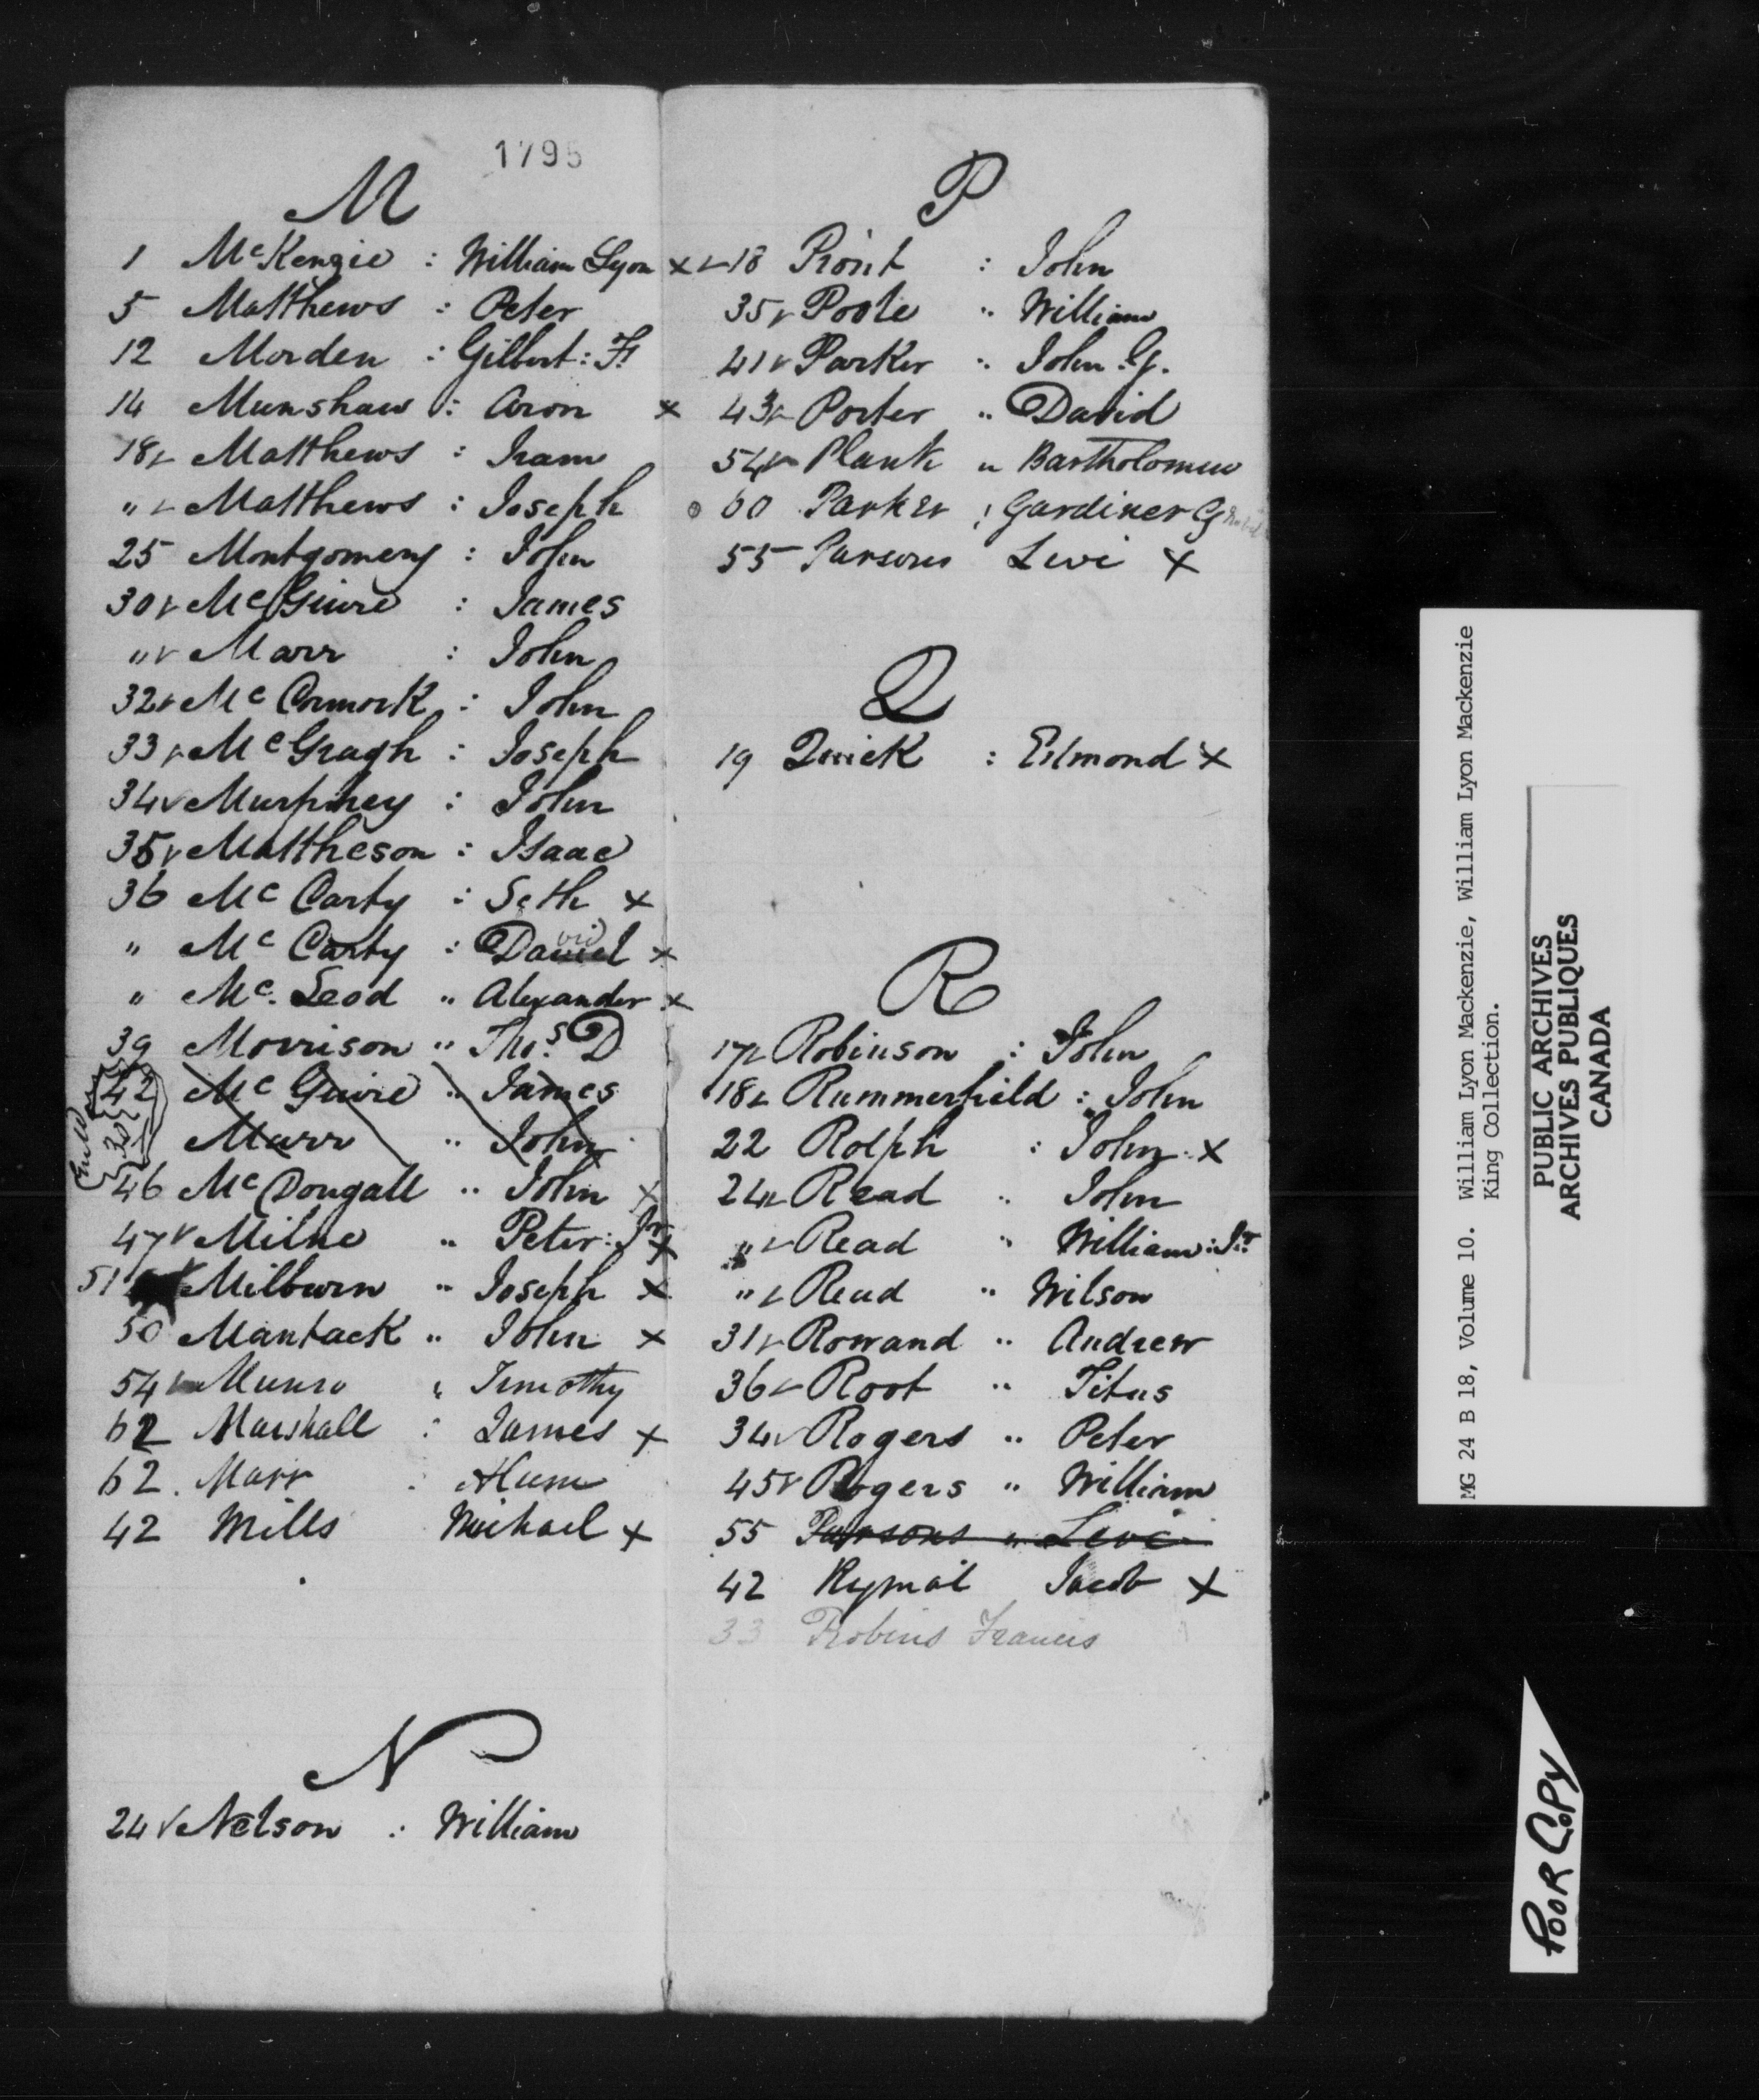 1795
M
1 McKenzie : William Lyon x
5 Matthews : Peter
12 Morden : Gilbert : F.
14 Munshaw : Aron x
18 ✓ Matthews : Iram
" ✓ Matthews : Joseph
25 Montgomery : John
30 ✓ McGuire : James
" ✓ Marr : John
32 ✓ McCormock : John
33 ✓ McGragh : Joseph
34 ✓ Murphey : John
35 ✓ Mattheson : Isaac
36 McCarty : Seth x
" McCarty : Daniel vid x
" Mc. Leod " Alexander x
39 Morrison " Thos. D
42 McGuire " James
30 Marr " John
46 McDougall " John x
47 ✓ Milne " Peter : Jr x
51 Milburn " Joseph x
50 Mantack " John x
54 ✓ Munro " Timothy
62 Marshall : James x
62. Marr : Hum
42 Mills Michael x
N
24 ✓ Nelson : William
P
✓ 18 Prout : John
35 ✓ Poole " William
41 ✓ Parker " John . G.
43 ✓ Porter " David
54 ✓ Plank " Bartholomew
o 60 Parker ; Gardiner G
55 Parsons Levi x
Q
19 Quick : Edmond x
R
17 ✓ Robinson : John
18 ✓ Rummerfield : John
22 Rolph : John x
24 ✓ Read " John
" ✓ Read " William : Jr.
" ✓ Read " Wilson
31 ✓ Rowand " Andrew
36 ✓ Root " Titus
34 ✓ Rogers " Peter
45 ✓ Rogers " William
55 Parsons " Levi
42 Rymal Jacob x
33 Robins Francis
MG 24 B 18, Volume 10. William Lyon Mackenzie, William Lyon Mackenzie
King Collection.
PUBLIC ARCHIVES
ARCHIVES PUBLIQUES
CANADA
POOR COPY